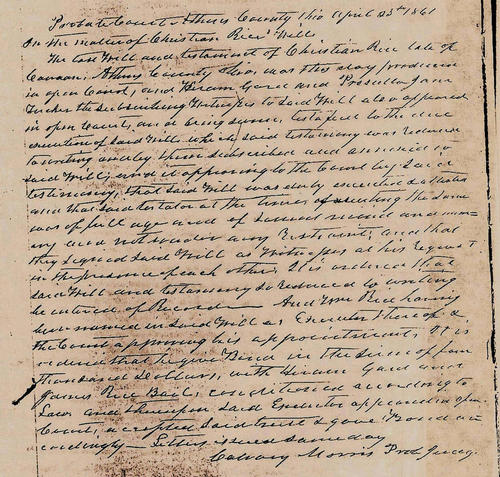 Probate Court Athens County Ohio April 23rd 1861
In the matter of Christian Rice's Will
The last Will and testament of Christian Rice late of
Canaan, Athens County Ohio, was this day produced
in open Court, and Hiram Gard and Jane
Tucker the subscribing Witnesses to said Will also appeared
in open Court, and being sworn, testified to the due
execution of said Will, which said testimony was reduced
to writing and by them subscribed and annexed to
said Will, and it appearing to the Court by said
testimony, that said Will was duly executed & attested
and that said testator at the time of executing the same
was of full age and of sound mind and mem-
ory and not under any Restraint; and that
they signed said Will as Witnesses at his request
in the presence of each other. It is ordered that
said Will and testimony so reduced to writing
be entered of Record. And Wm Rice having
been named in said Will as Executor thereof &
the Court approving his appointment, It is
ordered that he give Bond in the sum of four
thousand Dollars, with Hiram Gard and
James Rice Bail, conditioned according to
Law and thereupon said Executor appeared in open
Court, accepted said trust & gave Bond ac-
cordingly Letters issued same day
Calvary Morris Prob Judg.